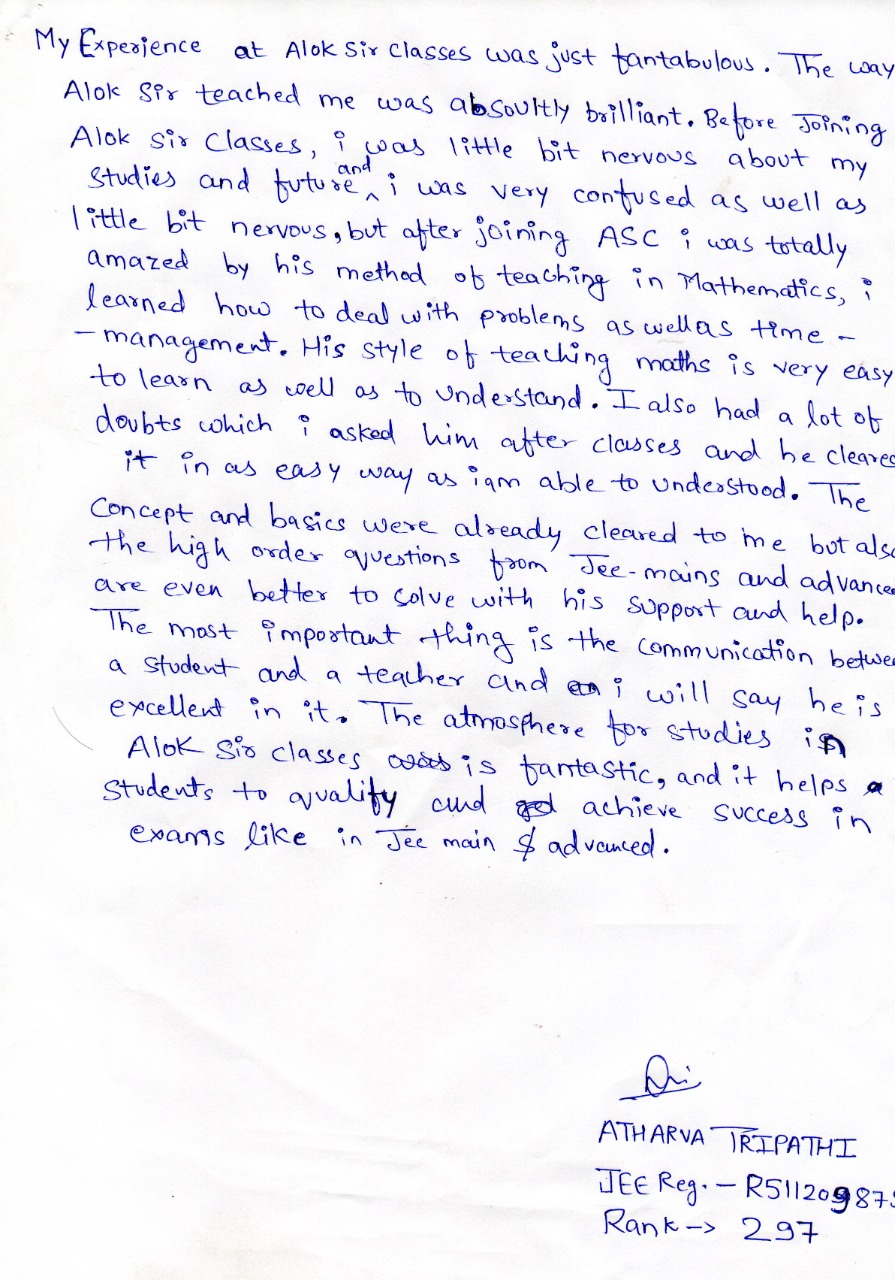 My Experience at Alok Sir Classes was just fantabulous. The way
Alok Sir teached me was absoultly brilliant. Before Joining
Alok Sir Classes, i was little bit nervous about my
and
Studies and future ‸ i was very confused as well as
little bit nervous, but after joining ASC i was totally
amazed by his method of teaching in Mathematics, i
learned how to deal with problems as well as time -
- management. His style of teaching maths is very easy
to learn as well as to Understand. I also had a lot of
doubts which i asked him after classes and he cleare
it in as easy way as i am able to understood. The
Concept and basics were already cleared to me but als
the high order questions from Jee-mains and advance
are even better to solve with his support and help.
The most important thing is the communication betwe
a student and a teacher and i will say he is
excellent in it. The atmosphere for studies in
Alok Sir Classes is fantastic, and it helps a
Students to qualify and achieve success in
exams like in Jee main & advanced.
ATHARVA TRIPATHI
JEE Reg. - R511209875
Rank -> 297